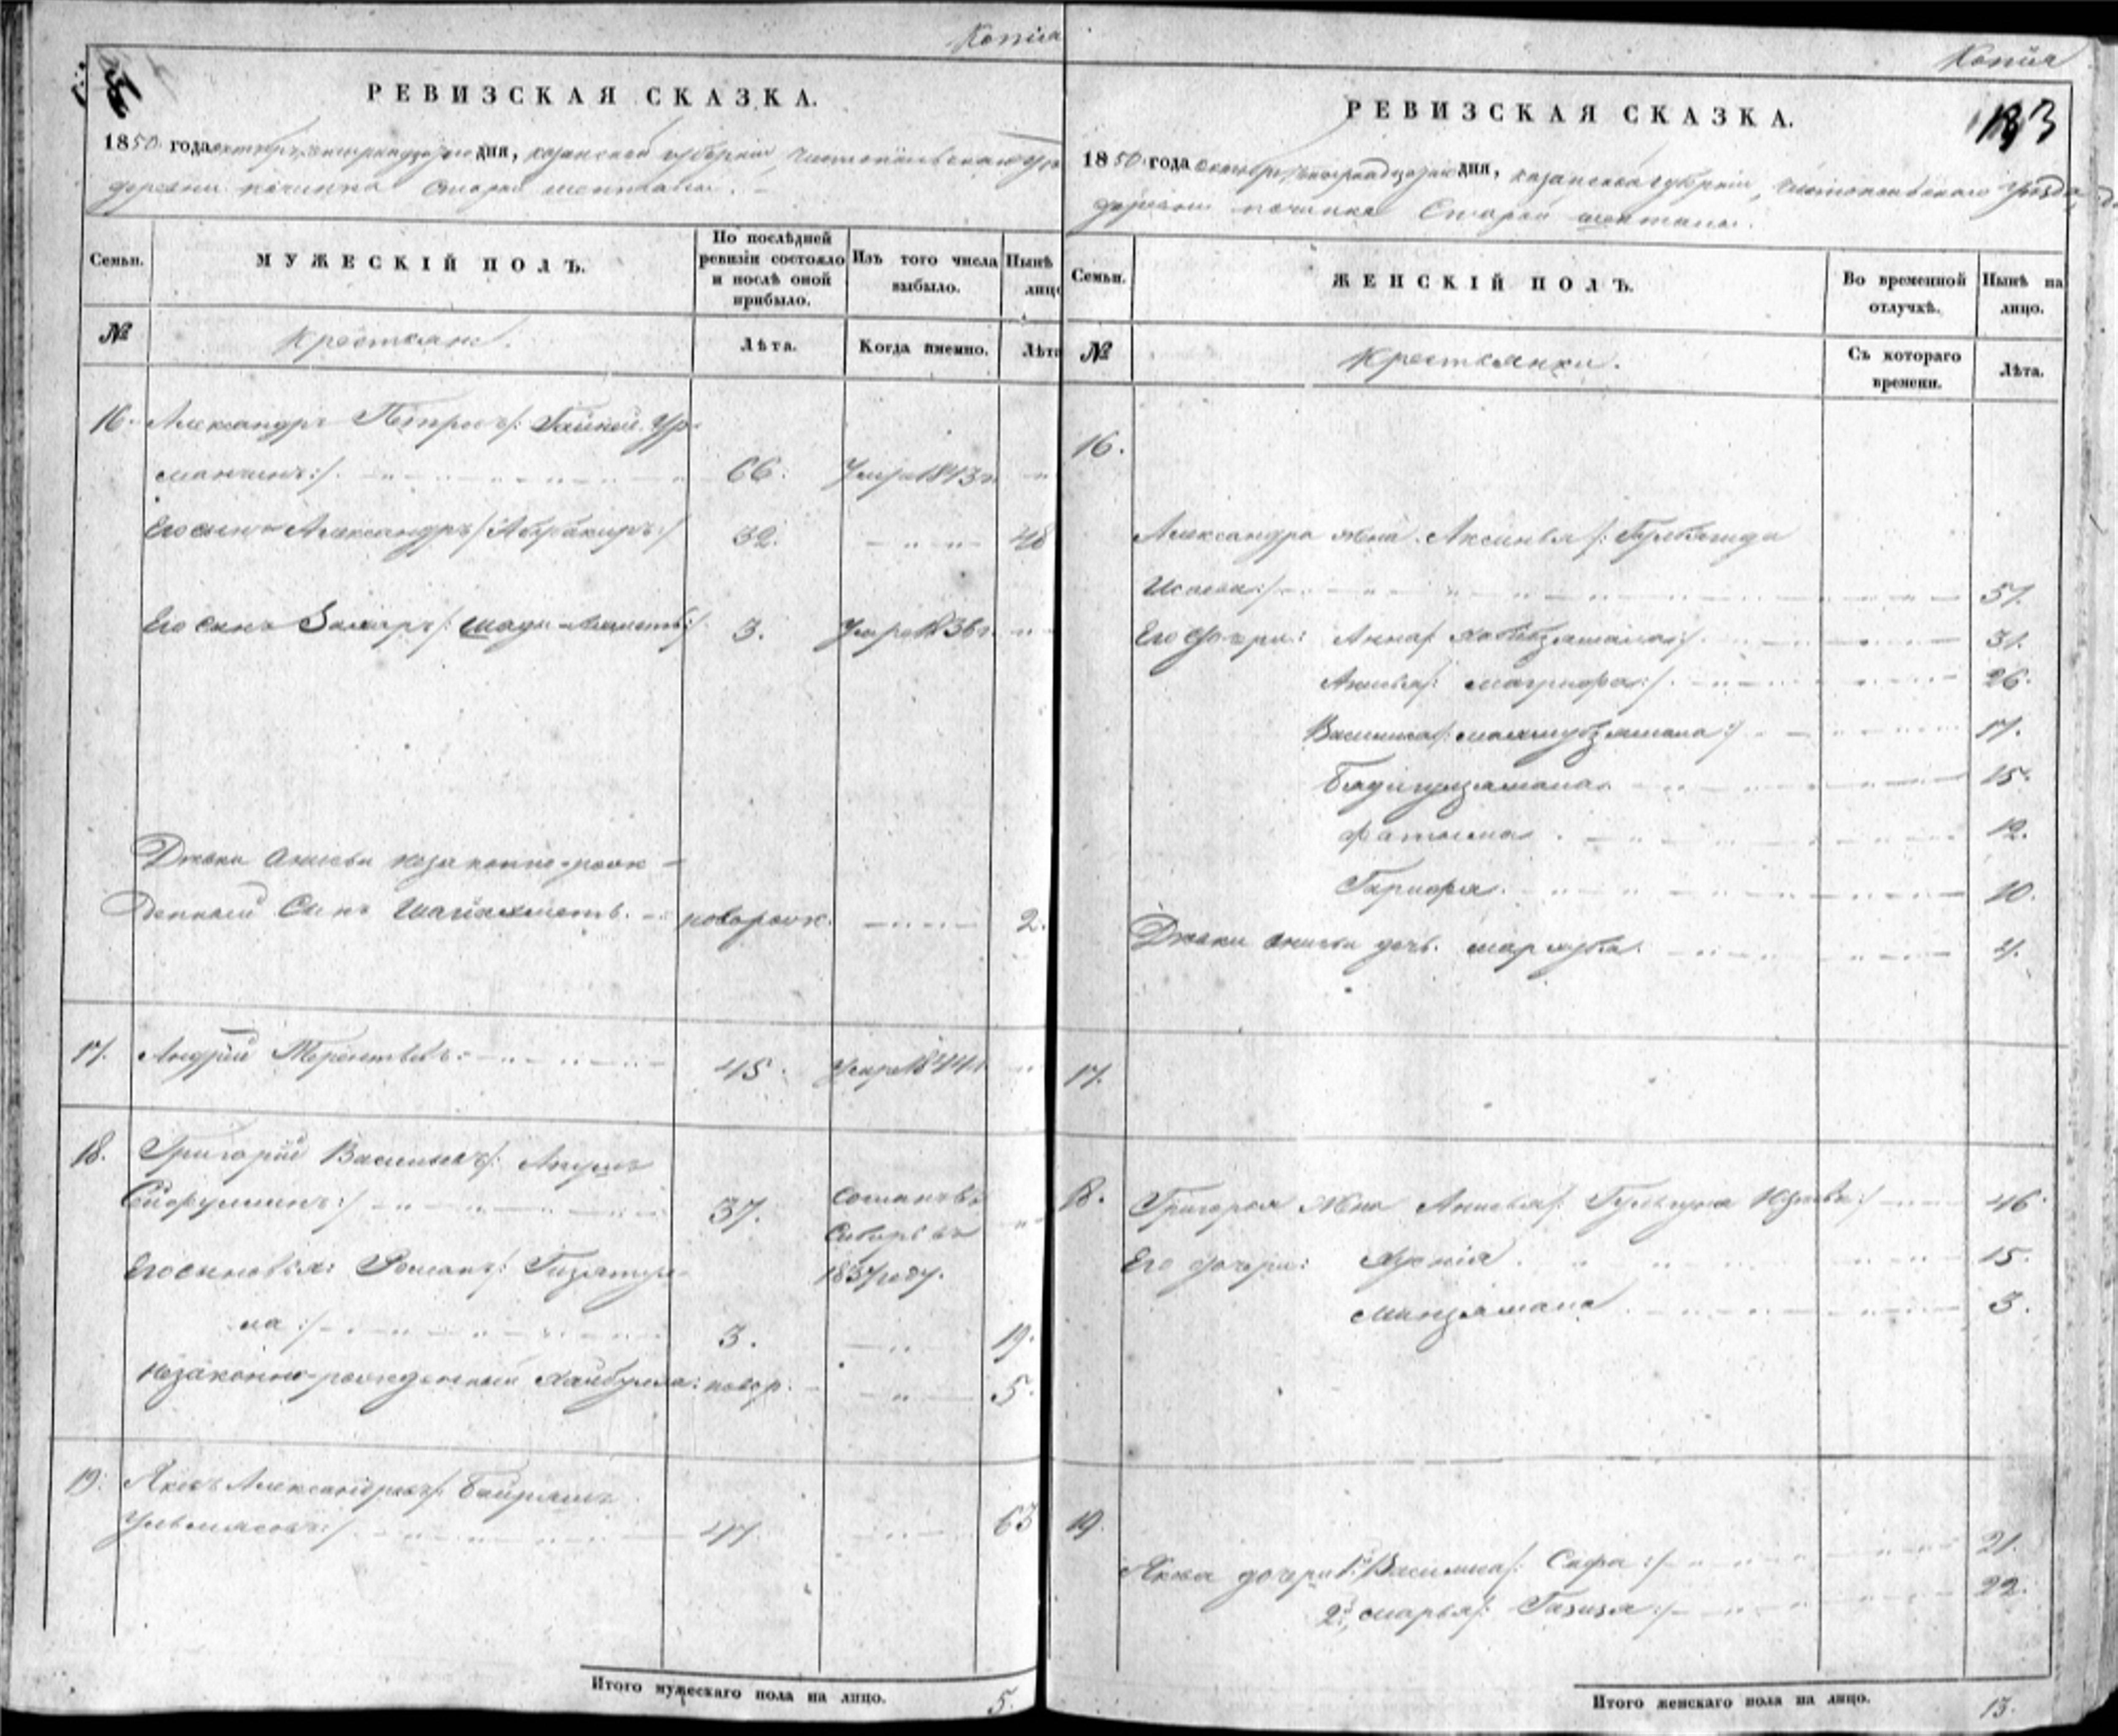 Копія
РЕВИЗСКАЯ СКАЗКА.
1850 года октября дня, казанской губерніи, Чистопольскаго уез
деревни починка Старой
Семьи.
МУЖЕСКІЙ ПОЛЪ.
По послѣдней ревизіи состояло и послѣ оной прибыло.
Изъ того числа выбыло.
Нынѣ лицо
№
Крестьяне.
Лѣта.
Когда именно.
Лѣта
16. Александръ Петровъ /: Ур-
манчинъ :/ 66. Умре 1843 г.
Его сынъ Александръ /: Абубакиръ :/ 32. 48
Его сынъ /: :/ 3. Умре 1836 г.
Девки Анисьи незаконно-рож-
денный Сынъ Шагиахметъ. новорож. 2.
17. Андрей Терентьевъ 45. Умре 1844 г.
18. Григорій Васильевъ /:
Сейфуллинъ :/ 37. Сосланъ въ
Сибирь въ
1837 году.
Его сыновья: Романъ /: Гизятул-
ла :/ 3. 19.
Незаконно-рожденный Хайбулла: новор. 5.
19. Яковъ Александровъ /: Байрямъ
:/ 47. 63
Итого мужескаго пола на лицо. 5.
Копія
133
РЕВИЗСКАЯ СКАЗКА.
1850 года октября дня, казанской губерніи, Чистопольскаго уезда
деревни починка Старой
Семьи.
ЖЕНСКІЙ ПОЛЪ.
Во временной отлучкѣ.
Нынѣ на лицо.
№
Крестьянки.
Съ котораго времени.
Лѣта.
16.
Александра жена Аксинья /:
Исаева :/ 51.
Его дочери: Анна /: Хабибзямала :/ 31.
Анисья /: магруфа :/ 26.
Василиса /: махмубзямала :/ 17.
Бядигулзямала 15.
Фатыма 12.
Гарифа 10.
Девки Анисьи дочь. 4.
17.
18. Григорья жена Анисья /: :/ 46.
Его дочери: 15.
Минзямала 3.
19.
Якова дочери 1я Василиса /: Сафа :/ 21.
2я, Марья /: Газиза :/ 22.
Итого женскаго пола на лицо. 13.